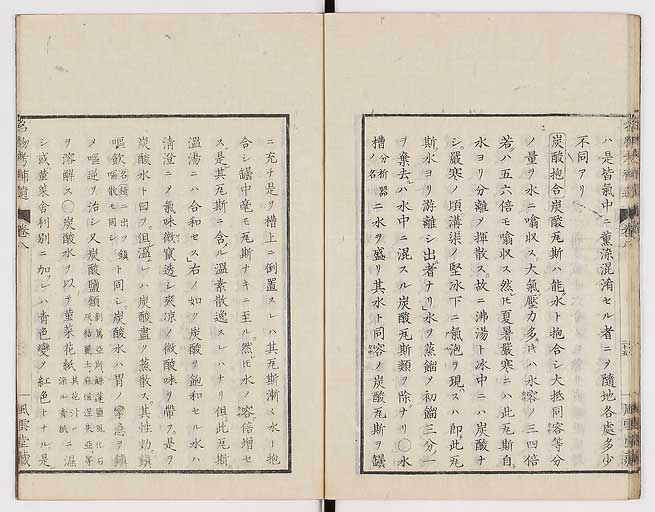 ハ是皆氣中ニ薫滌混淆セル者ニヲ隨地各處多少
不同アリ
炭酸抱合炭酸瓦斯ハ能水ト抱合シ大抵同容等分
ノ量ヲ水ニ噏収ス大氣壓力多キハ水容ノ三四倍
若ハ五六倍モ噏収ス然㪽夏暑嚴寒ニハ此瓦斯自
水ヨリ分離ヲ揮散ス故ニ沸湯ト氷中ニハ炭酸ナ
シ嚴寒ノ頃溝渠ノ堅氷下ニ氣泡ヲ現スハ即此瓦
斯水ヨリ游離シ出ル者ナリ水ヲ蒸餾ヲ初餾三分一
ヲ棄去レハ水中ニ混スル炭酸瓦斯類ヲ除ナリ〇水
槽分析器ノ名ニ水ヲ盛リ其水ト同容ノ炭酸瓦斯ヲ罎
ニ充チ是ヲ槽上ニ倒置スレハ其瓦斯漸〱水ト抱
合シ罎中毫モ瓦斯ナキニ至ル然㪽水ノ容倍增セ
ス是其瓦斯ニ含ル溫素散逸スレハナリ但此瓦斯
溫湯ニハ合和セス右ノ如ク炭酸ヲ飽和セル水ハ
清澄ニノ氣味微竄透シ爽凉ノ微酸味ヲ帶フ是ヲ
炭酸水ト曰フ但溫レハ炭酸盡ク蒸散ス其性効鎭
嘔飲名鎭嘔散モ同シニ出ツト同シ炭酸水ハ胃ノ攣急ヲ鎭
メ嘔逆ヲ治シ又炭酸鹽類
ヲ溶解ス〇炭酸水ヲ以ヲ菫菜花紙其花汁ニ染ル青紙ニ濕
シ或菫菜舎利別ニ加レハ青色變ヲ紅色トナル是
名物考補遺
卷八
風雲堂藏